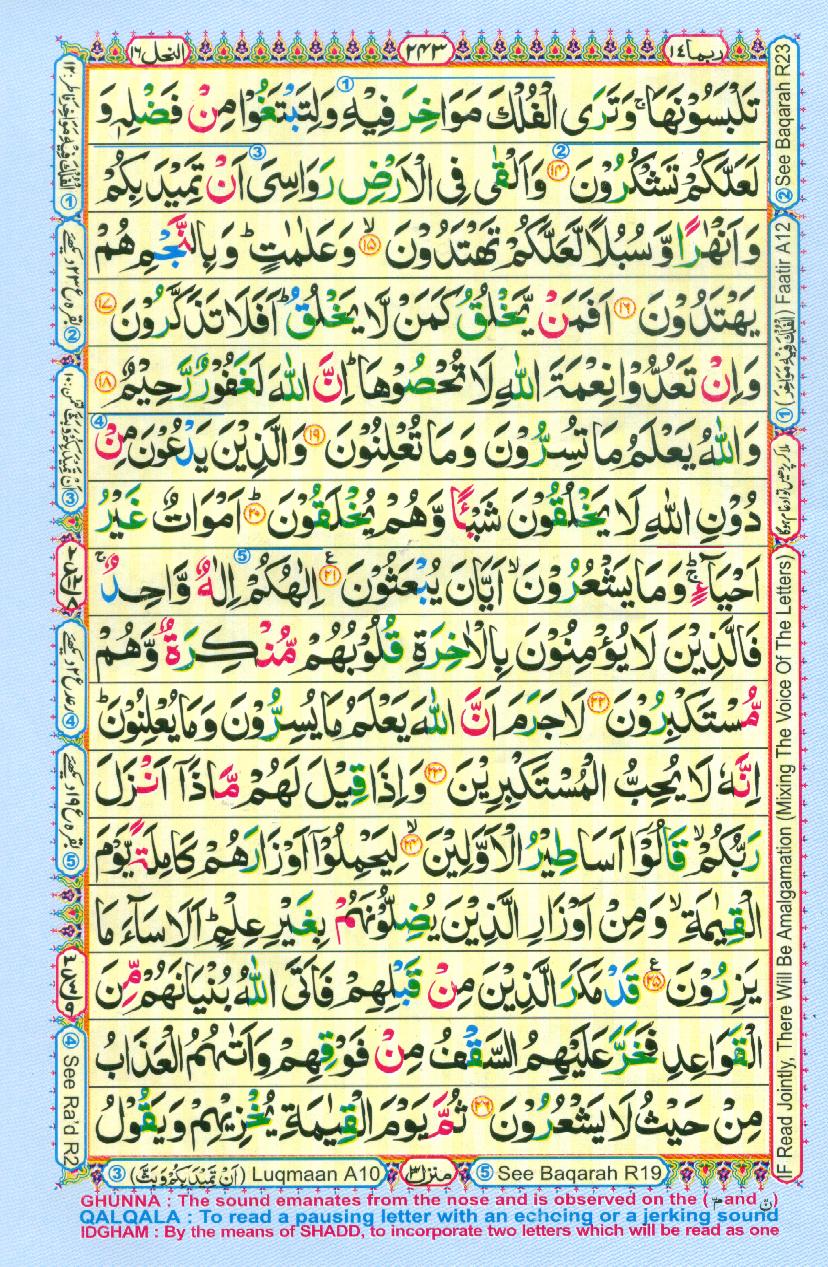 النحل ١٦
٢٤٣
ربما ١٤
تَلْبَسُوْنَهَا ۚ وَتَرَى الْفُلْكَ مَوَاخِرَ فِيْهِ وَلِتَبْتَغُوْا مِنْ فَضْلِهٖ وَ
لَعَلَّكُمْ تَشْكُرُوْنَ ﴿۱۴﴾ وَاَلْقٰى فِى الْاَرْضِ رَوَاسِىَ اَنْ تَمِيْدَ بِكُمْ
وَاَنْهٰرًا وَّسُبُلًا لَّعَلَّكُمْ تَهْتَدُوْنَ ۙ﴿۱۵﴾ وَعَلٰمٰتٍ ؕ وَبِالنَّجْمِ هُمْ
يَهْتَدُوْنَ ﴿۱۶﴾ اَفَمَنْ يَّخْلُقُ كَمَنْ لَّا يَخْلُقُ ؕ اَفَلَا تَذَكَّرُوْنَ ﴿۱۷﴾
وَاِنْ تَعُدُّوْا نِعْمَةَ اللّٰهِ لَا تُحْصُوْهَا ؕ اِنَّ اللّٰهَ لَغَفُوْرٌ رَّحِيْمٌ ﴿۱۸﴾
وَاللّٰهُ يَعْلَمُ مَا تُسِرُّوْنَ وَمَا تُعْلِنُوْنَ ﴿۱۹﴾ وَالَّذِيْنَ يَدْعُوْنَ مِنْ
دُوْنِ اللّٰهِ لَا يَخْلُقُوْنَ شَيْـًٔا وَّهُمْ يُخْلَقُوْنَ ؕ﴿۲۰﴾ اَمْوَاتٌ غَيْرُ
اَحْيَآءٍ ۚ وَمَا يَشْعُرُوْنَ ۙ اَيَّانَ يُبْعَثُوْنَ ﴿۲۱﴾ اِلٰهُكُمْ اِلٰهٌ وَّاحِدٌ ۚ
فَالَّذِيْنَ لَا يُؤْمِنُوْنَ بِالْاٰخِرَةِ قُلُوْبُهُمْ مُّنْكِرَةٌ وَّهُمْ
مُّسْتَكْبِرُوْنَ ﴿۲۲﴾ لَا جَرَمَ اَنَّ اللّٰهَ يَعْلَمُ مَا يُسِرُّوْنَ وَمَا يُعْلِنُوْنَ ؕ
اِنَّهٗ لَا يُحِبُّ الْمُسْتَكْبِرِيْنَ ﴿۲۳﴾ وَاِذَا قِيْلَ لَهُمْ مَّاذَآ اَنْزَلَ
رَبُّكُمْ ۙ قَالُوْٓا اَسَاطِيْرُ الْاَوَّلِيْنَ ۙ﴿۲۴﴾ لِيَحْمِلُوْٓا اَوْزَارَهُمْ كَامِلَةً يَّوْمَ
الْقِيٰمَةِ ۙ وَمِنْ اَوْزَارِ الَّذِيْنَ يُضِلُّوْنَهُمْ بِغَيْرِ عِلْمٍ ؕ اَلَا سَآءَ مَا
يَزِرُوْنَ ﴿۲۵﴾ قَدْ مَكَرَ الَّذِيْنَ مِنْ قَبْلِهِمْ فَاَتَى اللّٰهُ بُنْيَانَهُمْ مِّنَ
الْقَوَاعِدِ فَخَرَّ عَلَيْهِمُ السَّقْفُ مِنْ فَوْقِهِمْ وَاَتٰىهُمُ الْعَذَابُ
مِنْ حَيْثُ لَا يَشْعُرُوْنَ ﴿۲۶﴾ ثُمَّ يَوْمَ الْقِيٰمَةِ يُخْزِيْهِمْ وَيَقُوْلُ
② See Baqarah R23
① (الفلك فيه مواخر) Faatir A12
IF Read Jointly, There Will Be Amalgamation (Mixing The Voice Of The Letters)
④ See Ra'd R2
③ (اَنْ تَمِيْدَ بِكُمْ وَبَثَّ) Luqmaan A10
منزل ٣
⑤ See Baqarah R19
GHUNNA : The sound emanates from the nose and is observed on the (مّ and نّ)
QALQALA : To read a pausing letter with an echoing or a jerking sound
IDGHAM : By the means of SHADD, to incorporate two letters which will be read as one